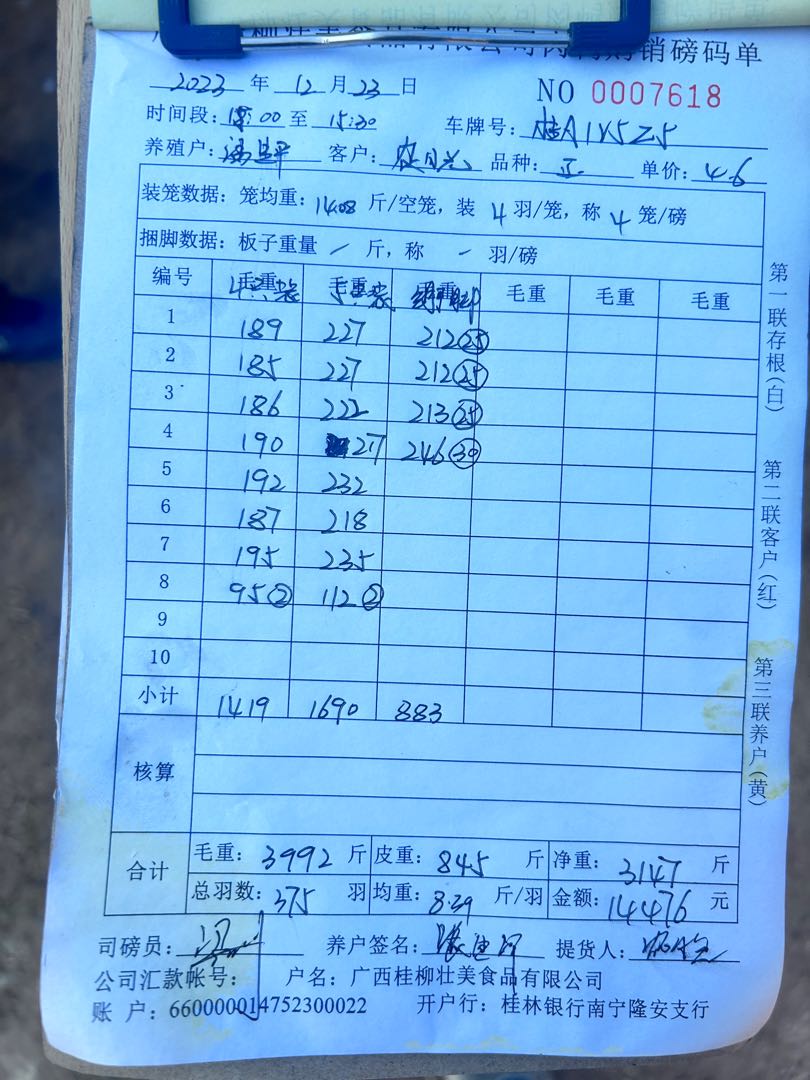 销磅码单
2023 年 12 月 23 日 NO 0007618
时间段: :00 至 15:30 车牌号: 桂A1V5Z5
养殖户: 客户: 品种: 正 单价: 4.6
装笼数据: 笼均重: 14.08 斤/空笼, 装 4 羽/笼, 称 4 笼/磅
捆脚数据: 板子重量 / 斤, 称 - 羽/磅
编号 毛重 毛重 毛重 毛重 毛重
1 189 227 212 25
2 185 227 212 25
3 186 222 213 25
4 190 217 246 30
5 192 232
6 187 218
7 195 235
8 95 2 112 2
9
10
小计 1419 1690 883
核算
合计 毛重: 3992 斤 皮重: 845 斤 净重: 3147 斤
总羽数: 375 羽 均重: 8.39 斤/羽 金额: 14476 元
司磅员: 养户签名: 提货人:
公司汇款帐号: 户名: 广西桂柳壮美食品有限公司
账 户: 660000014752300022 开户行: 桂林银行南宁隆安支行
第一联存根(白)
第二联客户(红)
第三联养户(黄)